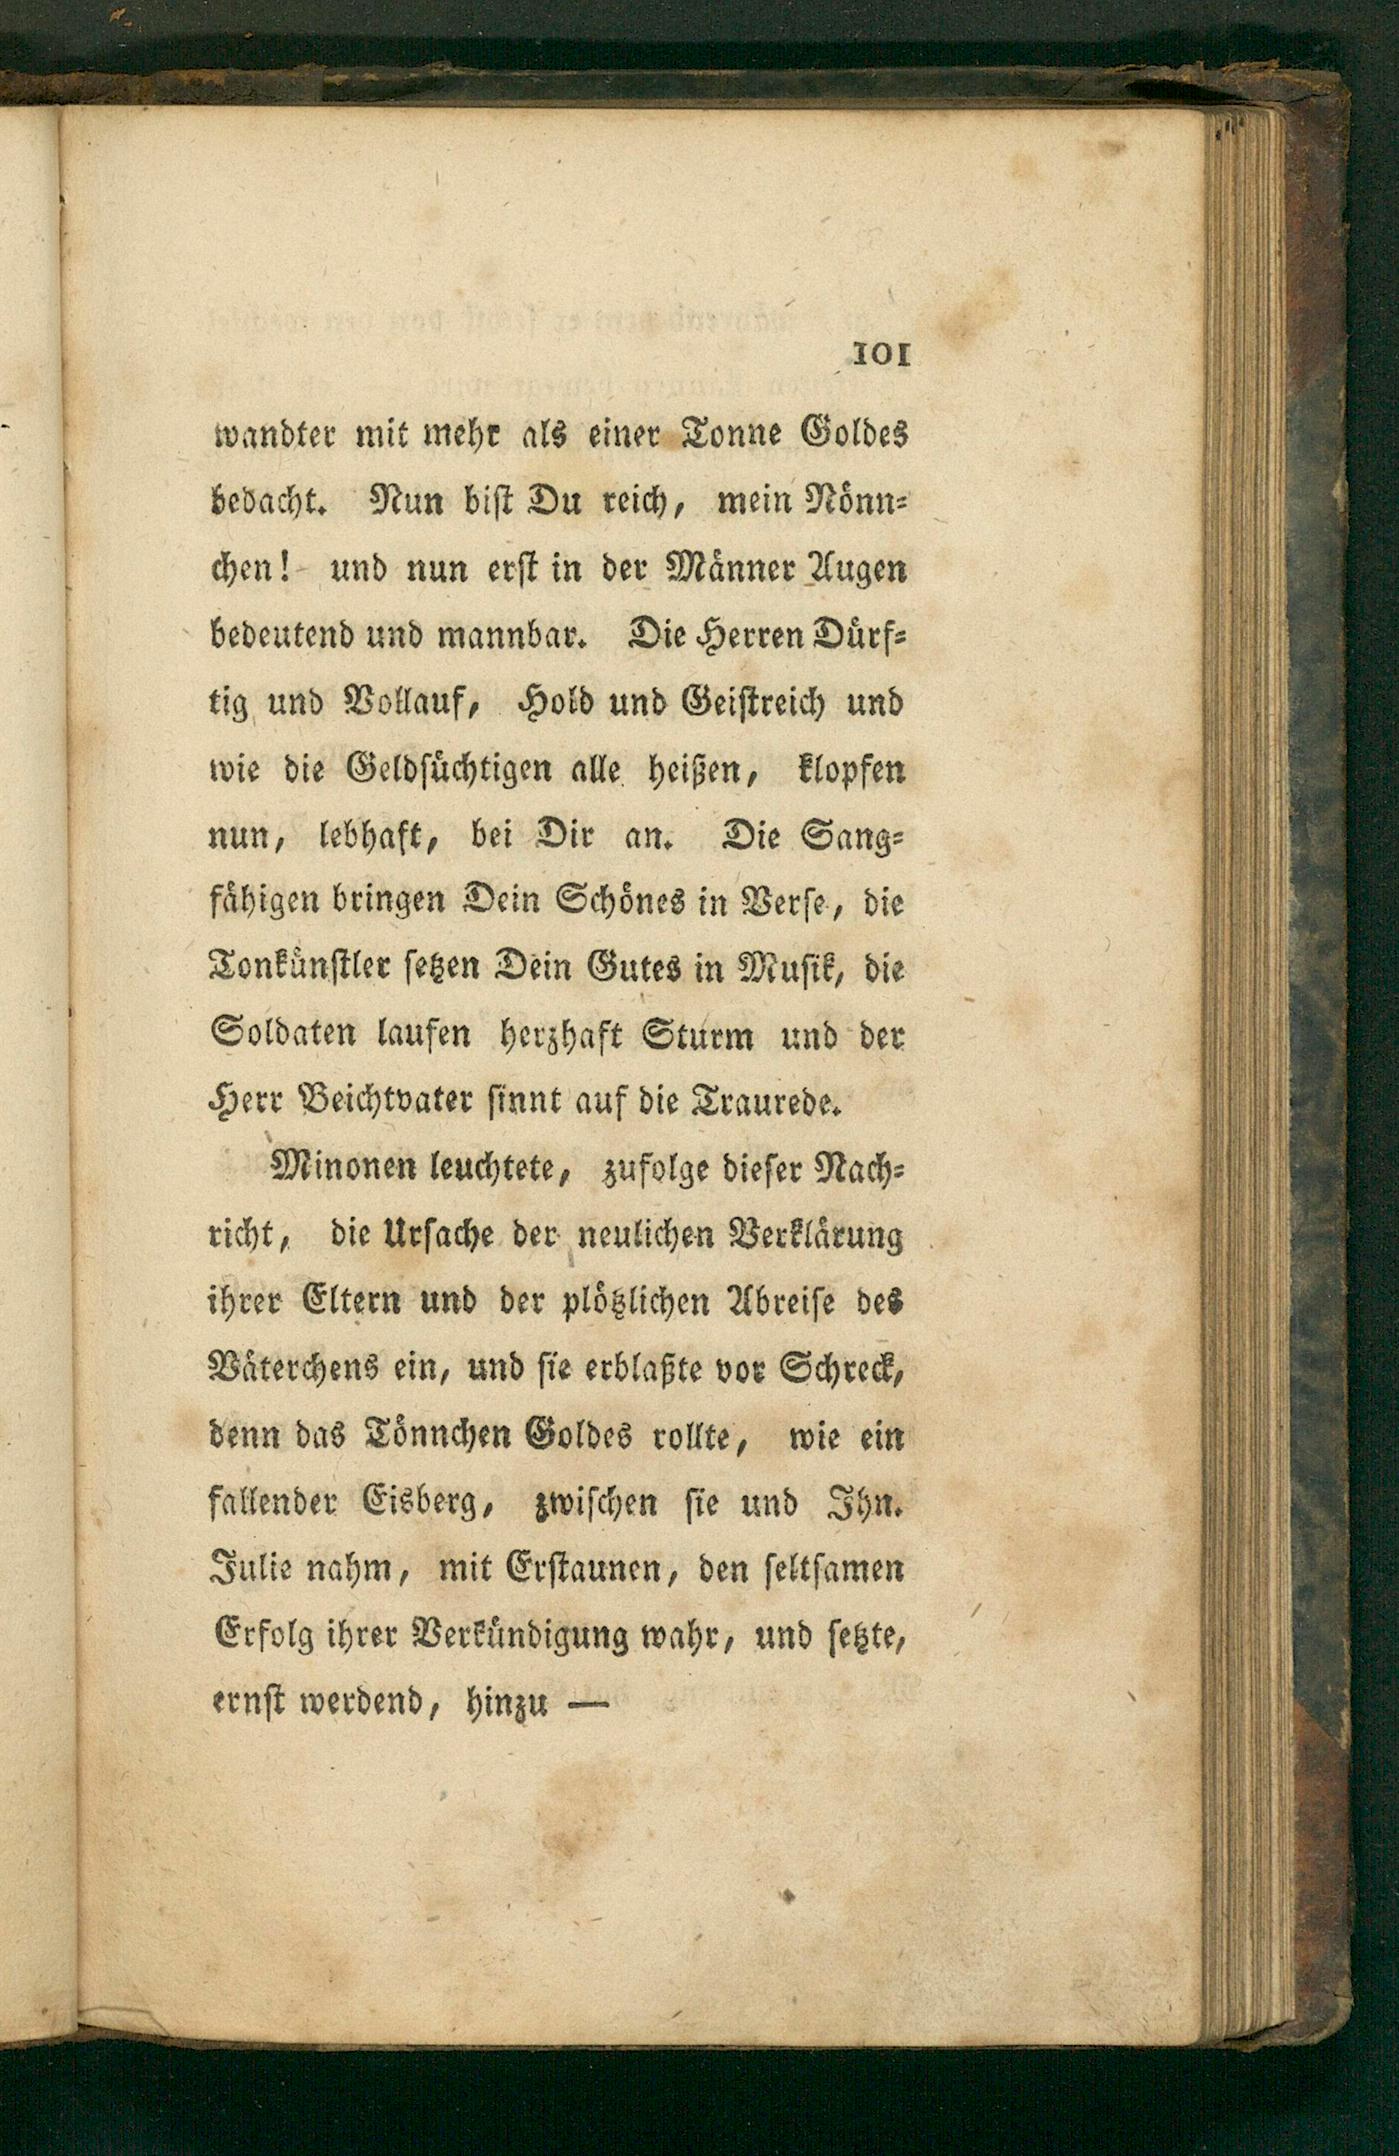 101
wandter mit mehr als einer Tonne Goldes
bedacht. Nun bist Du reich, mein Nönn-
chen! und nun erst in der Männer Augen
bedeutend und mannbar. Die Herren Dürf-
tig und Vollauf, Hold und Geistreich und
wie die Geldsüchtigen alle heißen, klopfen
nun, lebhaft, bei Dir an. Die Sang-
fähigen bringen Dein Schönes in Verse, die
Tonkünstler setzen Dein Gutes in Musik, die
Soldaten laufen herzhaft Sturm und der
Herr Beichtvater sinnt auf die Traurede.
Minonen leuchtete, zufolge dieser Nach-
richt, die Ursache der neulichen Verklärung
ihrer Eltern und der plötzlichen Abreise des
Väterchens ein, und sie erblaßte vor Schreck,
denn das Tönnchen Goldes rollte, wie ein
fallender Eisberg, zwischen sie und Ihn.
Julie nahm, mit Erstaunen, den seltsamen
Erfolg ihrer Verkündigung wahr, und setzte,
ernst werdend, hinzu —